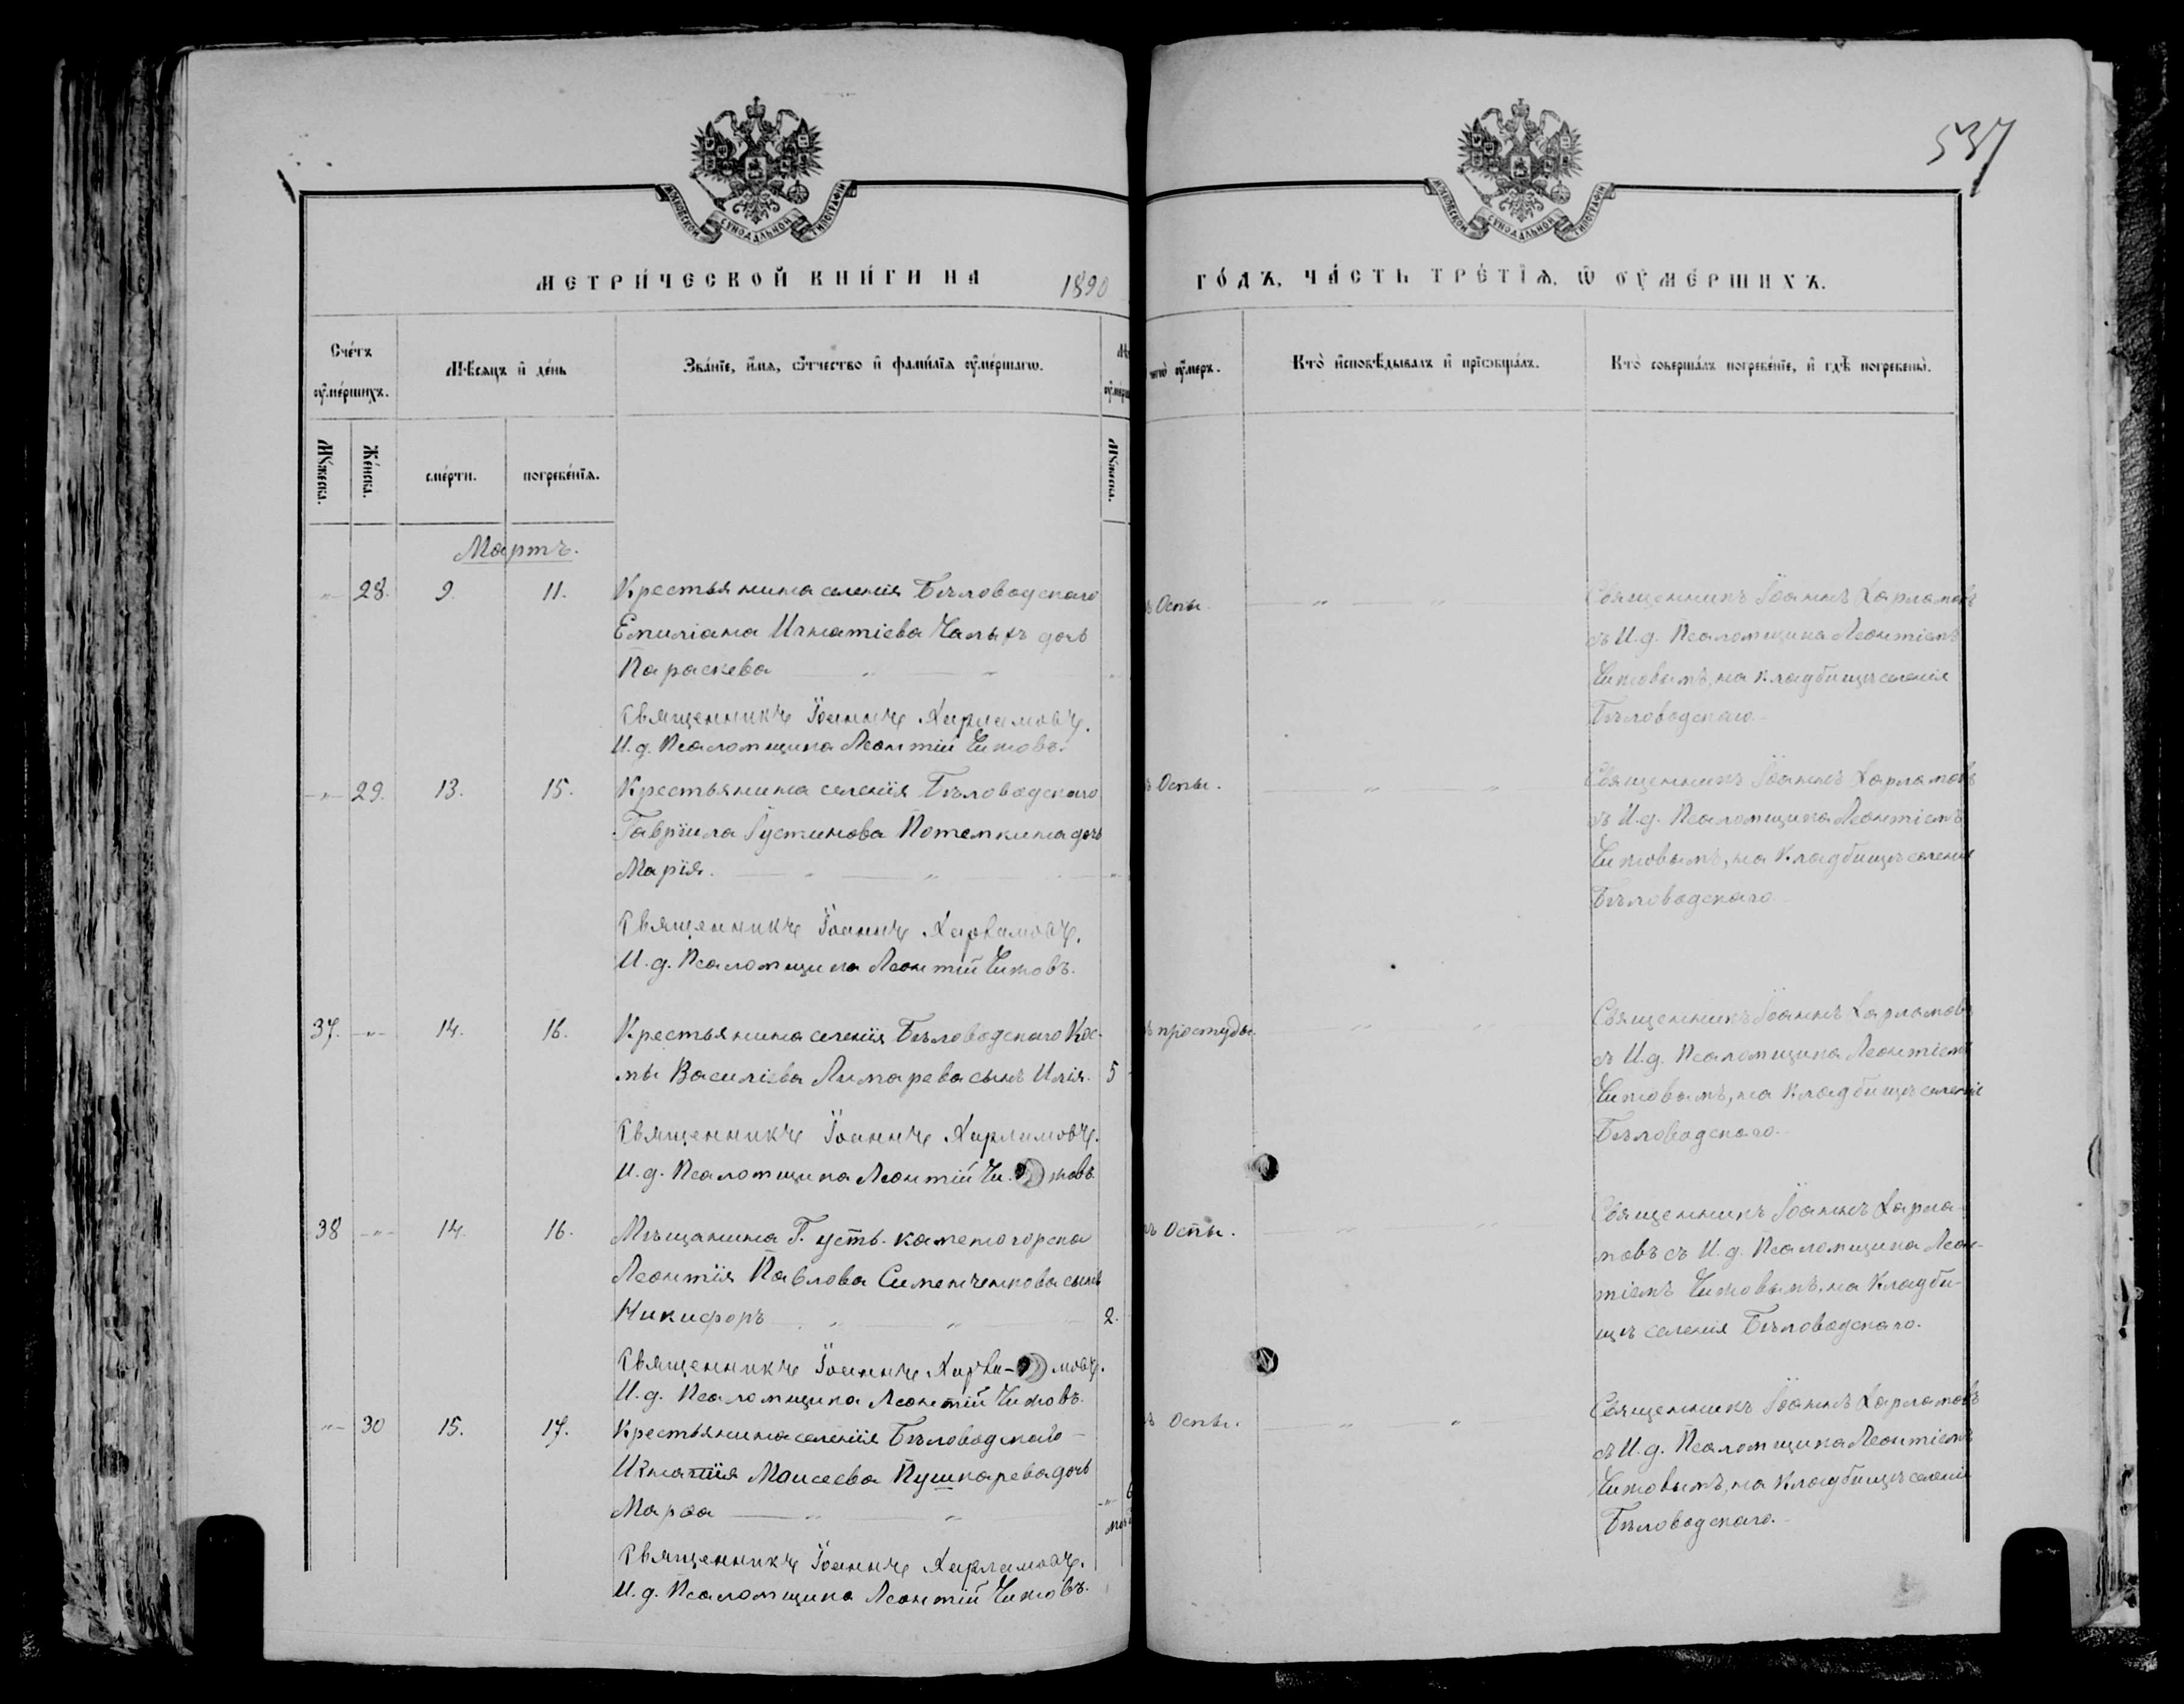 537
МОСКОВСКОЙ СУНОДАЛЬНОЙ ТИПОГРАФІИ
МОСКОВСКОЙ СУНОДАЛЬНОЙ ТИПОГРАФІИ
МЕТРИ́ЧЕСКОЙ КНИ́ГИ НА 1890 ГО́ДЪ, ЧА́СТЬ ТРЕ́ТЇѦ, Ѿ ОУ҆МЕ́РШИХЪ.
Сче́тъ оу҆ме́ршихъ.
Мѣ́сяцъ и҆ де́нь
Зва́нїе, и҆́мя, ѻ҆́тчество и҆ фами́лїя оу҆ме́ршагѡ.
чегѡ̀ оу҆́меръ.
Кто̀ и҆сповѣ́дывалъ и҆ прїѻбща́лъ.
Кто̀ соверша́лъ погребе́нїе, и҆ гдѣ̀ погребены̀.
Мꙋ́жеска.
Же́нска.
сме́рти.
погребе́нїя.
Мꙋ́жеска.
Мартъ.
-„- 28. 9. 11. Крестьянина селенія Бѣловодскаго
Емиліана Игнатіева Чалыхъ дочь
Параскева
Священникъ Іоаннъ Харламовъ.
И. д. Псаломщика Леонтій Титовъ.
ъ Оспы.
Священникъ Іоаннъ Харламовъ
съ И. д. Псаломщика Леонтіемъ
Титовымъ, на кладбищѣ селенія
Бѣловодскаго.
-„- 29. 13. 15. Крестьянина селенія Бѣловодскаго
Гавріила Іустинова Потемкина дочь
Марія.
Священникъ Іоаннъ Харламовъ.
И. д. Псаломщика Леонтій Титовъ.
ъ Оспы.
Священникъ Іоаннъ Харламовъ
съ И. д. Псаломщика Леонтіемъ
Титовымъ, на кладбищѣ селенія
Бѣловодскаго
37. -„- 14. 16. Крестьянина селенія Бѣловодскаго Кос-
мы Василіева Лимарева сынъ Илія. 5
Священникъ Іоаннъ Харламовъ.
И. д. Псаломщика Леонтій Ти-товъ.
ъ простуды
Священникъ Іоаннъ Харламовъ
съ И. д. Псаломщика Леонтіемъ
Титовымъ, на кладбищѣ селенія
Бѣловодскаго.
38 -„- 14. 16. Мѣщанина Г. усть-каменогорска
Леонтія Павлова Сименченкова сынъ
Никифоръ 2.
Священникъ Іоаннъ Харла-мовъ.
И. д. Псаломщика Леонтій Титовъ.
ъ Оспы.
Священникъ Іоаннъ Харла-
мовъ съ И. д. Псаломщика Леон-
тіемъ Титовымъ, на кладби-
щѣ селенія Бѣловодскаго.
-„- 30 15. 17. Крестьянина селенія Бѣловодскаго
Игнатія Моисеева Пушкарева дочь
Марѳа
Священникъ Іоаннъ Харламовъ.
И. д. Псаломщика Леонтій Титовъ.
ъ Оспы.
Священникъ Іоаннъ Харламовъ
съ И. д. Псаломщика Леонтіемъ
Титовымъ, на кладбищѣ селенія
Бѣловодскаго.